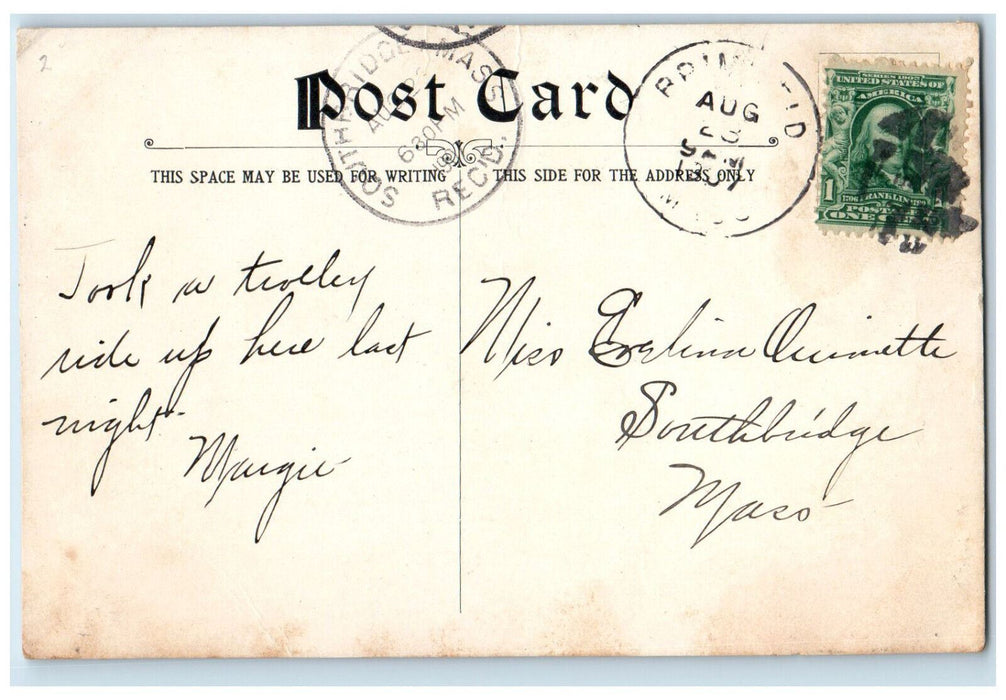 2
Post Card
THIS SPACE MAY BE USED FOR WRITING
THIS SIDE FOR THE ADDRESS ONLY
SOUTHBRIDGE MASS.
AUG
630PM
REC'D.
AUG
23
MASS
SERIES 1902
UNITED STATES OF
AMERICA
1
FRANKLIN
ONE
Took a trolley
ride up here last
night.
Margie
Miss Evelina Ouimette
Southbridge
Mass